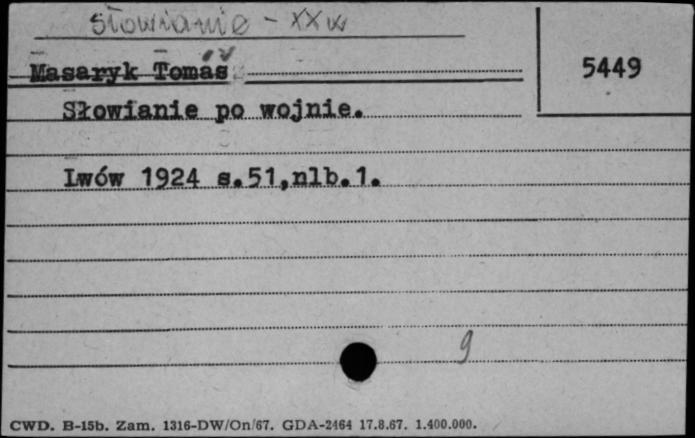 Słowianie - XX w
Masaryk Tomáš
5449
Słowianie po wojnie.
Lwów 1924 s.51,nlb.1.
9
CWD. B-15b. Zam. 1316-DW/On/67. GDA-2464 17.8.67. 1.400.000.